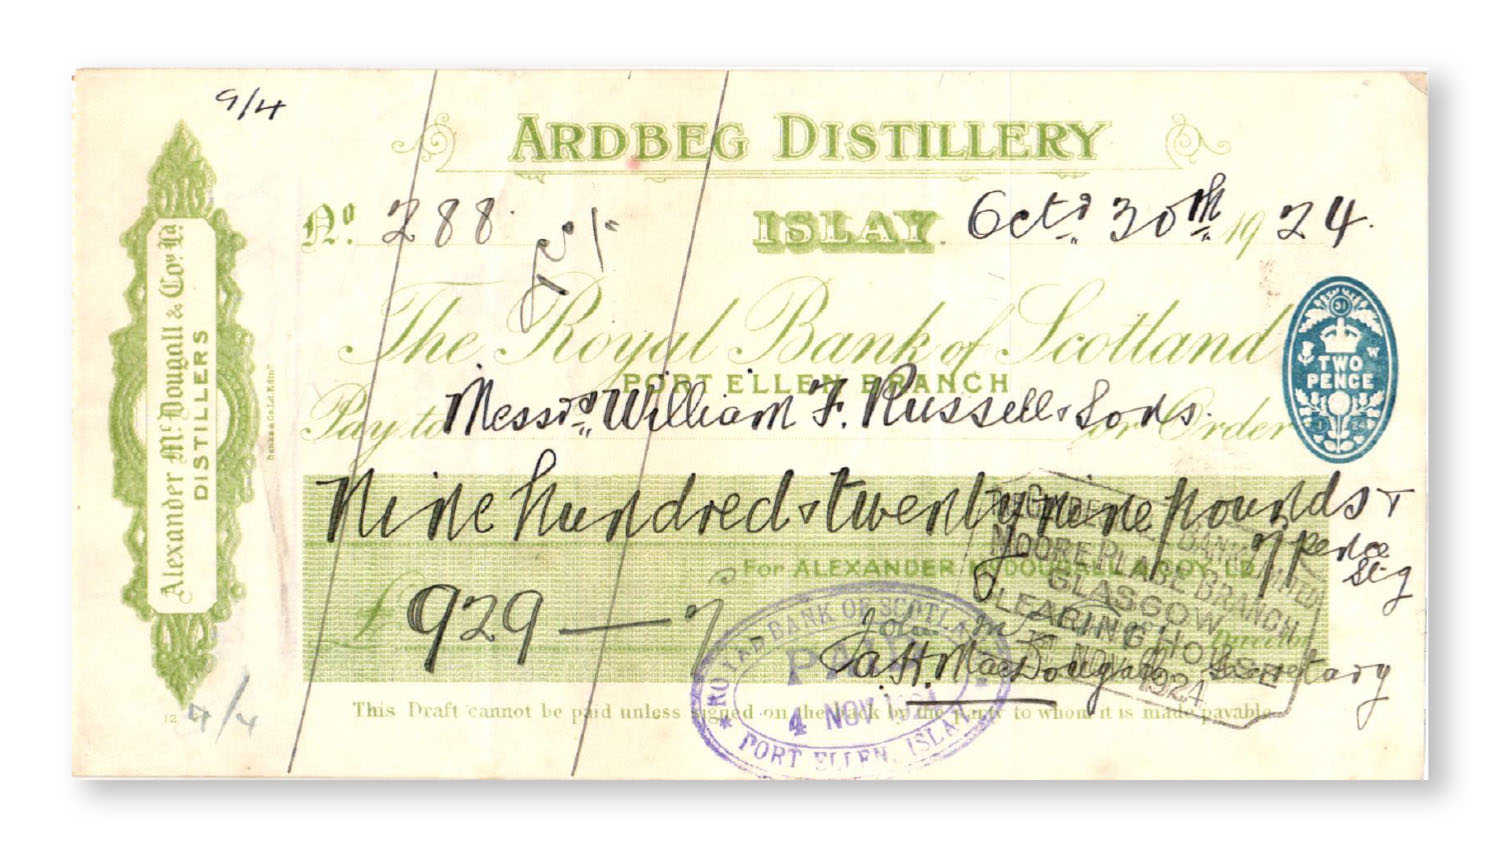 9/4
ARDBEG DISTILLERY
No. 288. ISLAY. Octr. 30th 1924.
The Royal Bank of Scotland
PORT ELLEN BRANCH
Pay to Messrs. William F. Russell & Sons. or Order
Nine hundred & twenty nine pounds &
7 pence
Stg
For ALEXANDER McDOUGALL & COY. LD.
£ 929 — 7
MacDougall Secretary
This Draft cannot be paid unless signed on the back by the party to whom it is made payable
Alexander McDougall & Coy. Ld.
DISTILLERS
TWO
PENCE
ROYAL BANK OF SCOTLAND
PAID
4 NOV 1924
PORT ELLEN, ISLAY
MOORE PLACE BRANCH
GLASGOW
CLEARING HOUSE
NOV 1924
4/4
12